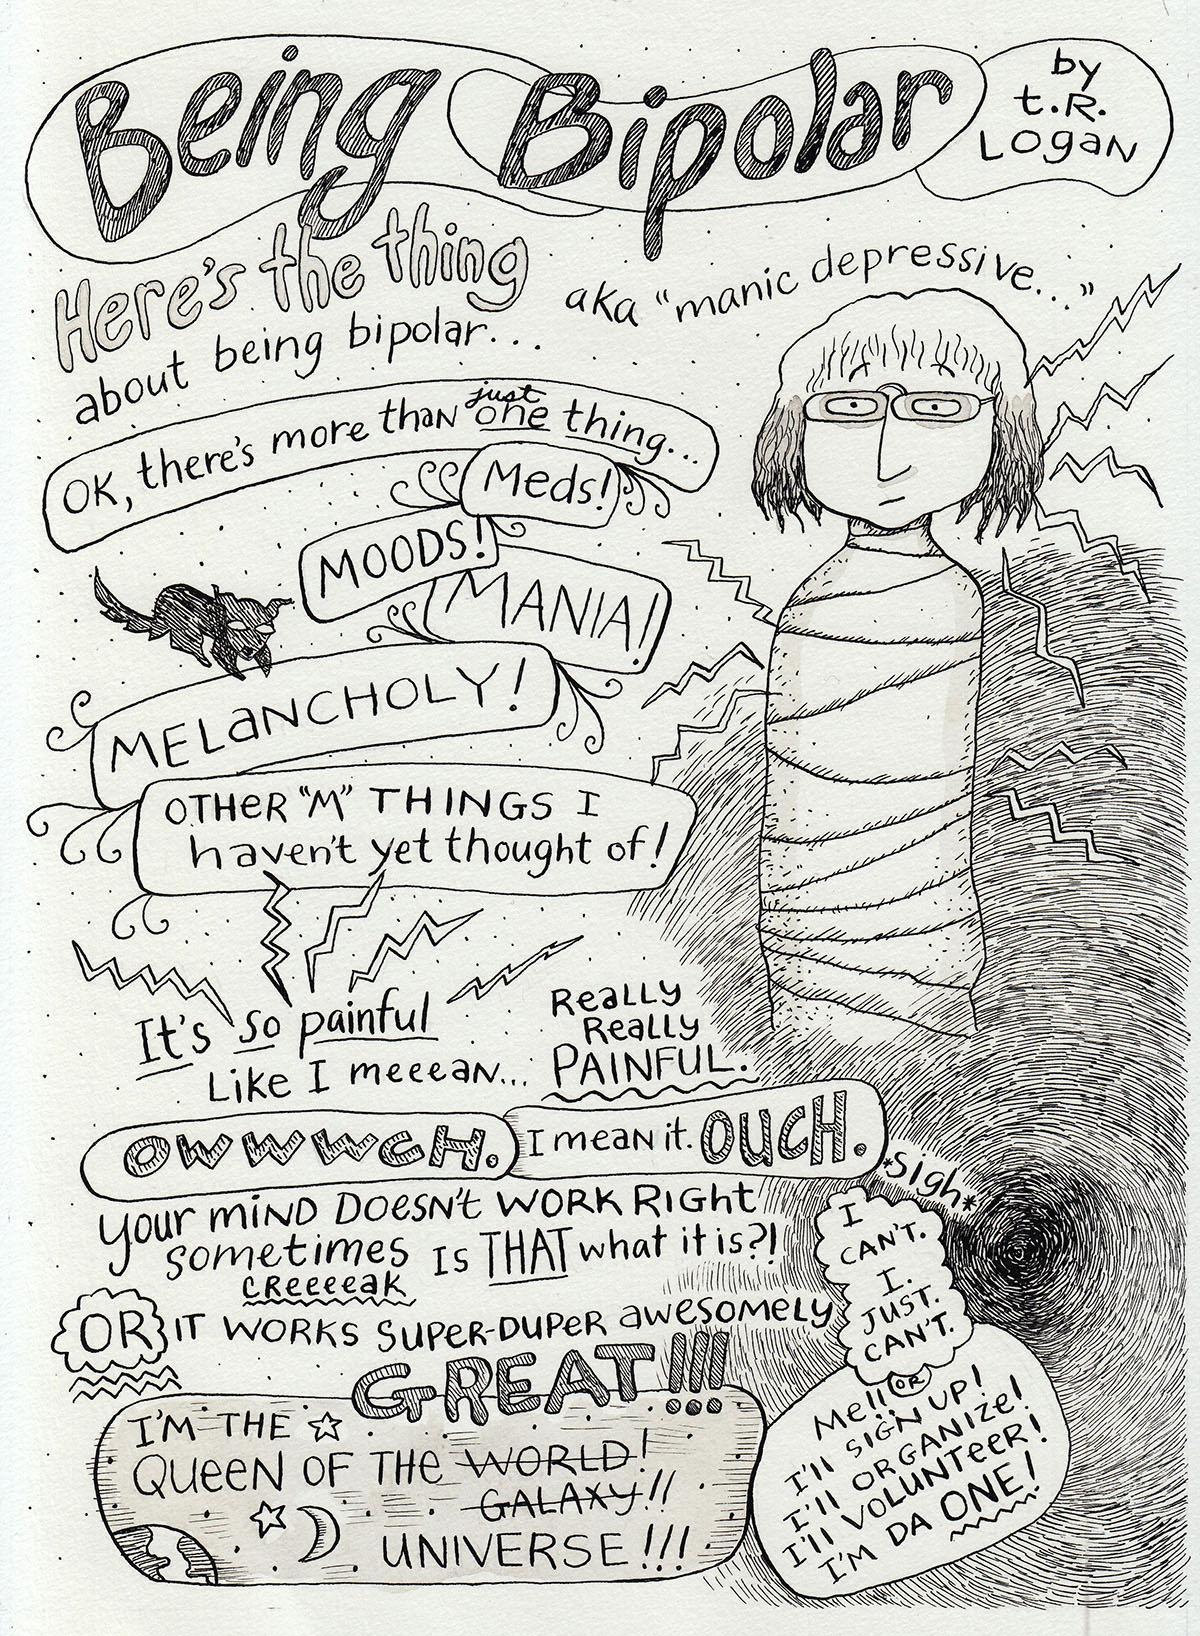 Being Bipolar
by
t.R.
Logan
Here's the thing
about being bipolar...
aka "manic depressive..."
OK, there's more than just one thing...
Meds!
MOODS!
MANIA!
MELANCHOLY!
OTHER "M" THINGS I
haven't yet thought of!
It's so painful
Like I meeean...
Really
Really
PAINFUL.
OWWWCH.
I mean it. OUCH.
*sigh*
Your mind doesn't work right
sometimes Is THAT what it is?!
CReeeeak
OR IT WORKS SUPER-DUPER awesomely
GREAT!!!
I'M THE
Queen OF THE WORLD!
GALAXY!!
UNIVERSE!!!
I
CAN'T.
I.
JUST.
CAN'T.
OR
Me!!
I'll SIGN UP!
I'll ORGANIZE!
I'll VOLUNTEER!
I'M DA ONE!